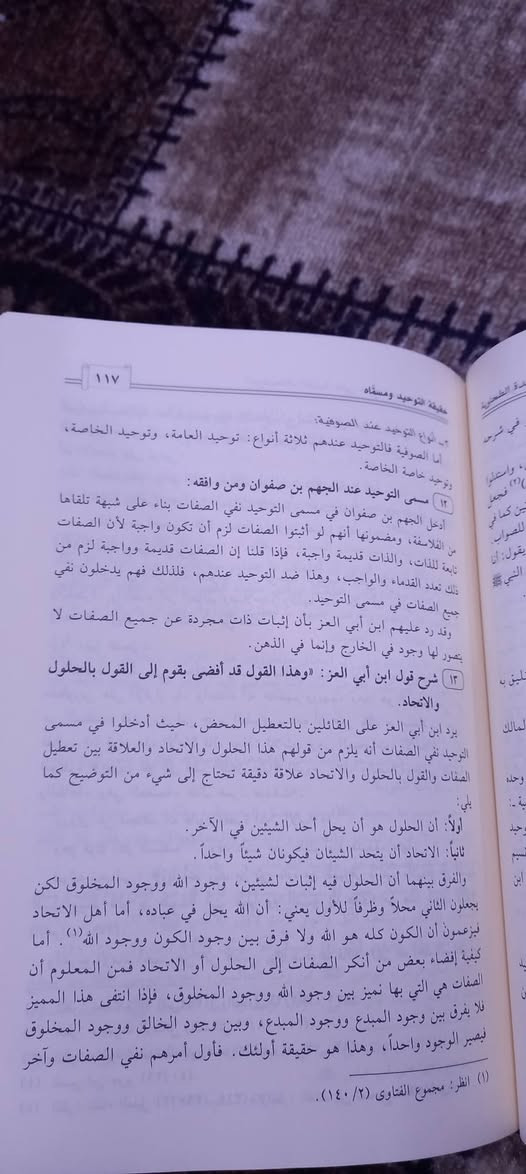 حقيقة التوحيد ومسمَّاه
١١٧
٣ـ أنواع التوحيد عند الصوفية:
أما الصوفية فالتوحيد عندهم ثلاثة أنواع: توحيد العامة، وتوحيد الخاصة،
وتوحيد خاصة الخاصة.
١٢ مسمى التوحيد عند الجهم بن صفوان ومن وافقه:
أدخل الجهم بن صفوان في مسمى التوحيد نفي الصفات بناء على شبهة تلقاها
من الفلاسفة، ومضمونها أنهم لو أثبتوا الصفات لزم أن تكون واجبة لأن الصفات
تابعة للذات، والذات قديمة واجبة، فإذا قلنا إن الصفات قديمة وواجبة لزم من
ذلك تعدد القدماء والواجب، وهذا ضد التوحيد عندهم، فلذلك فهم يدخلون نفي
جميع الصفات في مسمى التوحيد.
وقد رد عليهم ابن أبي العز بأن إثبات ذات مجردة عن جميع الصفات لا
يتصور لها وجود في الخارج وإنما في الذهن.
١٣ شرح قول ابن أبي العز: «وهذا القول قد أفضى بقوم إلى القول بالحلول
والاتحاد.
يرد ابن أبي العز على القائلين بالتعطيل المحض، حيث أدخلوا في مسمى
التوحيد نفي الصفات أنه يلزم من قولهم هذا الحلول والاتحاد والعلاقة بين تعطيل
الصفات والقول بالحلول والاتحاد علاقة دقيقة تحتاج إلى شيء من التوضيح كما
يلي:
أولاً: أن الحلول هو أن يحل أحد الشيئين في الآخر.
ثانياً: الاتحاد أن يتحد الشيئان فيكونان شيئاً واحداً.
والفرق بينهما أن الحلول فيه إثبات لشيئين، وجود الله ووجود المخلوق لكن
يجعلون الثاني محلاً وظرفاً للأول يعني: أن الله يحل في عباده، أما أهل الاتحاد
فيزعمون أن الكون كله هو الله ولا فرق بين وجود الكون ووجود الله(١). أما
كيفية إفضاء بعض من أنكر الصفات إلى الحلول أو الاتحاد فمن المعلوم أن
الصفات هي التي بها نميز بين وجود الله ووجود المخلوق، فإذا انتفى هذا المميز
فلا يفرق بين وجود المبدع ووجود المبدع، وبين وجود الخالق ووجود المخلوق
فيصير الوجود واحداً، وهذا هو حقيقة أولئك. فأول أمرهم نفي الصفات وآخر
(١) انظر: مجموع الفتاوى (٢/ ١٤٠).
الطحاوية
في شرحه
، واستدلوا
فجعل
كما في
للصواب
يقول: أنا
النبي ﷺ
به
المالك
وحده
ابن